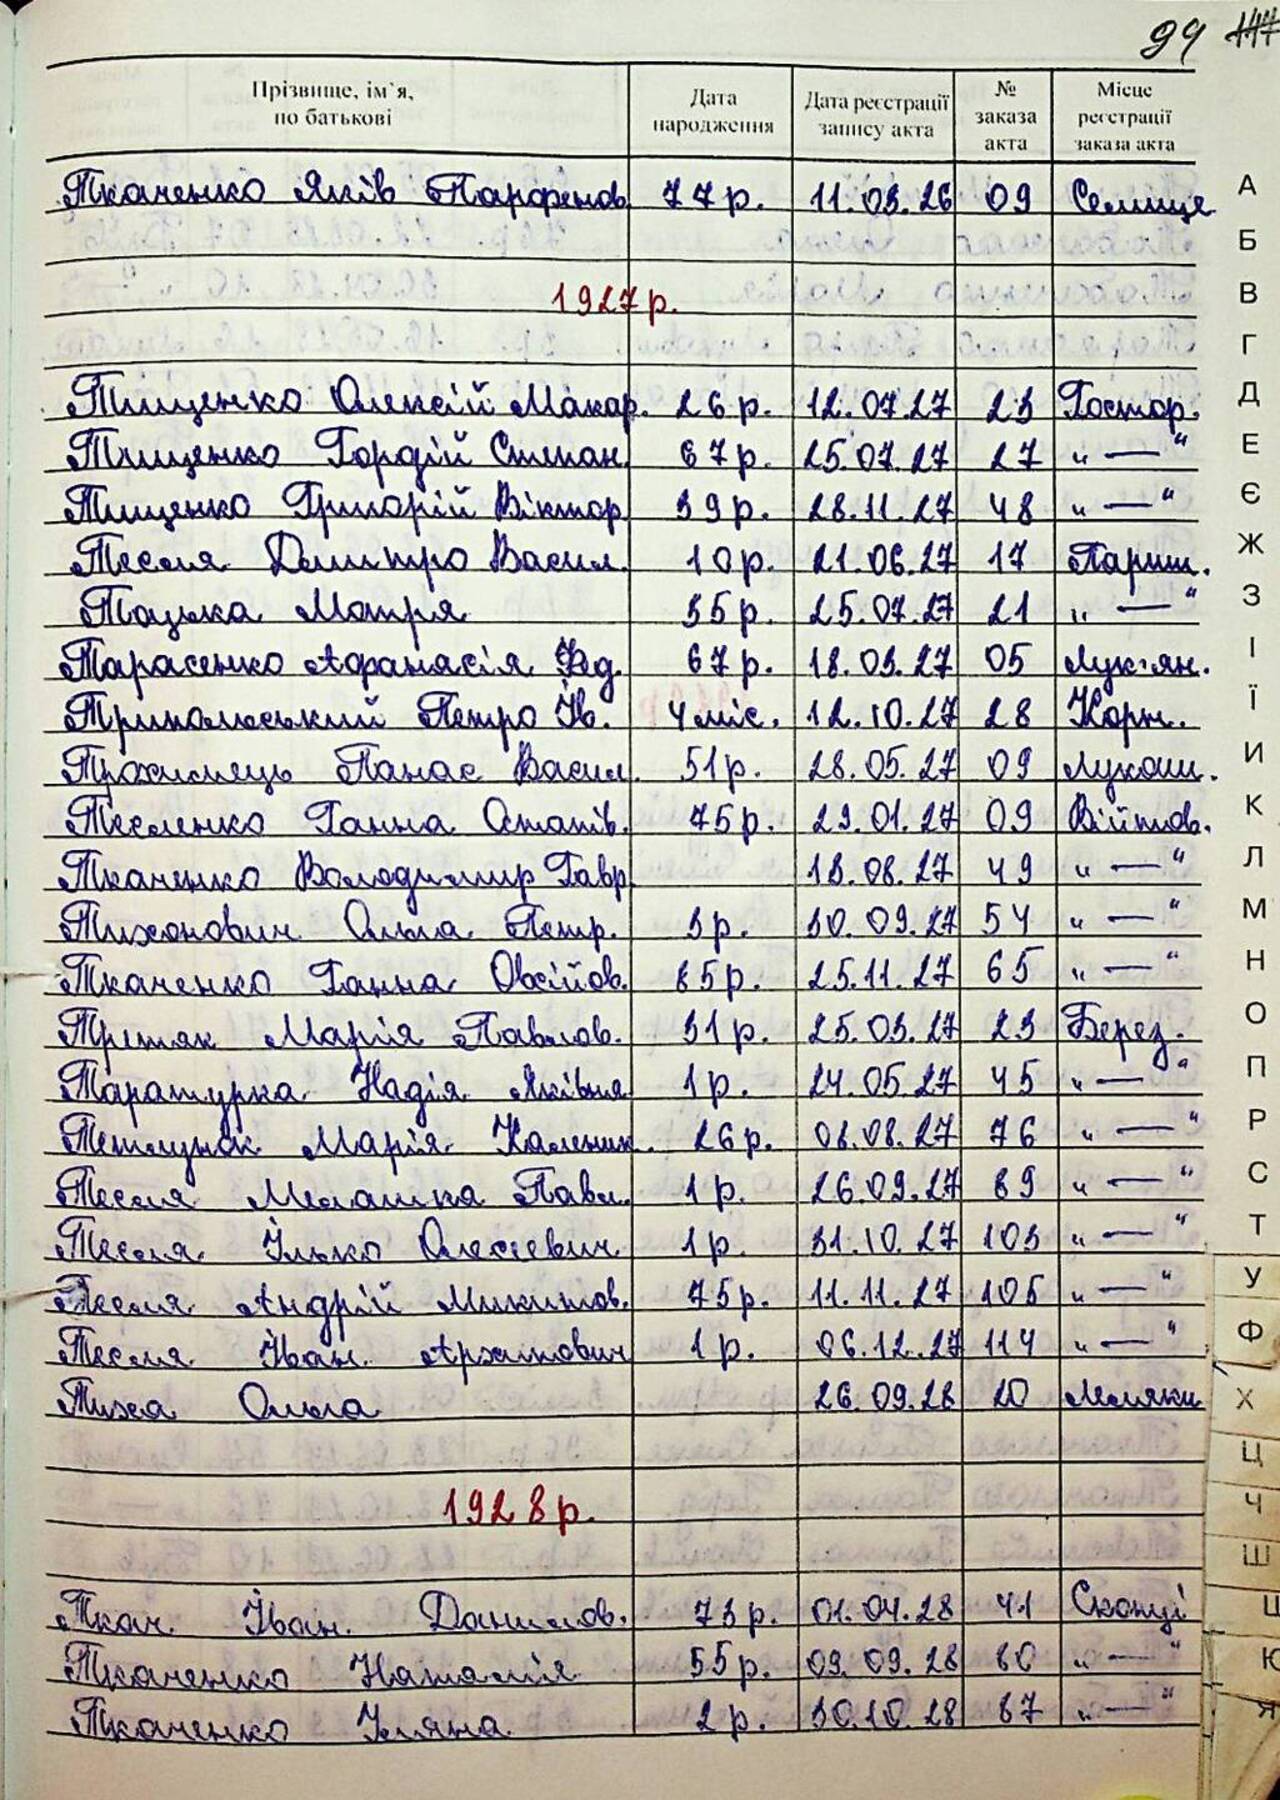 94
Прізвище, ім`я, по батькові Дата народження Дата реєстрації запису акта № заказа акта Місце реєстрації заказа акта
Ткаченко Яків Парфенов. 77 р. 11.03.26 09 Селище
1927 р.
Тищенко Олексій Макар. 26 р. 12.07.27 23 Гостор.
Тищенко Гордій Степан. 67 р. 25.07.27 27 „ — "
Тищенко Григорій Віктор. 39 р. 28.11.27 48 „ — "
Тесля Дмитро Васил. 10 р. 21.06.27 17 Париш.
Тоцька Мотря 35 р. 25.07.27 21 „ — "
Тарасенко Афанасія Фед. 67 р. 18.03.27 05 Лук'ян.
Трипольський Петро Ів. 4 міс. 12.10.27 28 Корж.
Панас Васил. 51 р. 28.05.27 09 Лукаш.
Тесленко Ганна Остапів. 75 р. 23.01.27 09 Війтов.
Ткаченко Володимир Гавр. 13.08.27 49 „ — "
Тихонович Ольга Петр. 3 р. 30.09.27 54 „ — "
Ткаченко Ганна Овсійов. 85 р. 25.11.27 65 „ — "
Третяк Марія Павлов. 31 р. 25.03.27 23 Берез.
Таратурка Надія Яківна 1 р. 24.05.27 45 „ — "
Марія Каленик. 26 р. 08.08.27 76 „ — "
Тесля Мелашка Павл. 1 р. 26.09.27 89 „ — "
Тесля Ілько Олексієвич 1 р. 31.10.27 103 „ — "
Тесля Андрій Микитов. 75 р. 11.11.27 105 „ — "
Тесля Іван Архипович 1 р. 06.12.27 114 „ — "
Тиха Ольга 26.09.28 20 Маляки
1928 р.
Ткач Іван Данилов. 73 р. 01.04.28 41 Скопці
Ткаченко Наталія 55 р. 09.09.28 80 „ — "
Ткаченко Уляна 2 р. 30.10.28 87 „ — "
А
Б
В
Г
Д
Е
Є
Ж
З
І
Ї
И
К
Л
М
Н
О
П
Р
С
Т
У
Ф
Х
Ц
Ч
Ш
Щ
Ю
Я